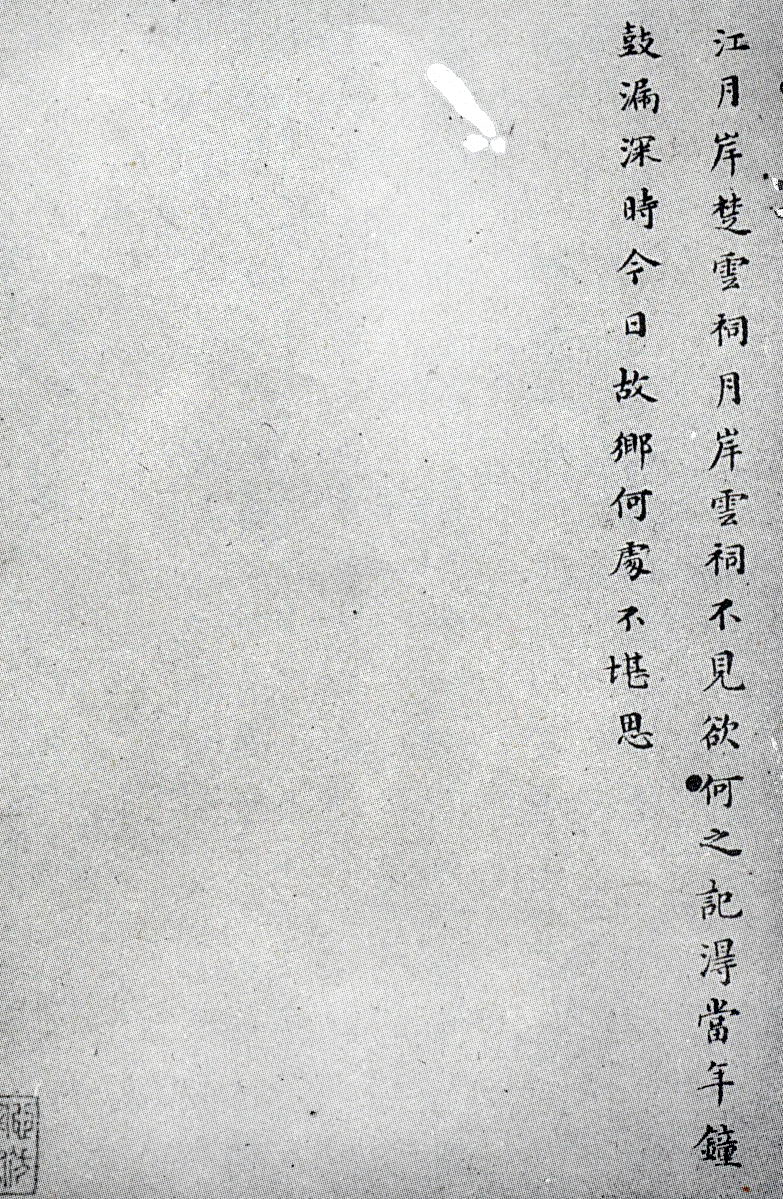 江月岸楚雲祠月岸雲祠不見欲何之記得當年鐘
鼓漏深時今日故鄉何處不堪思